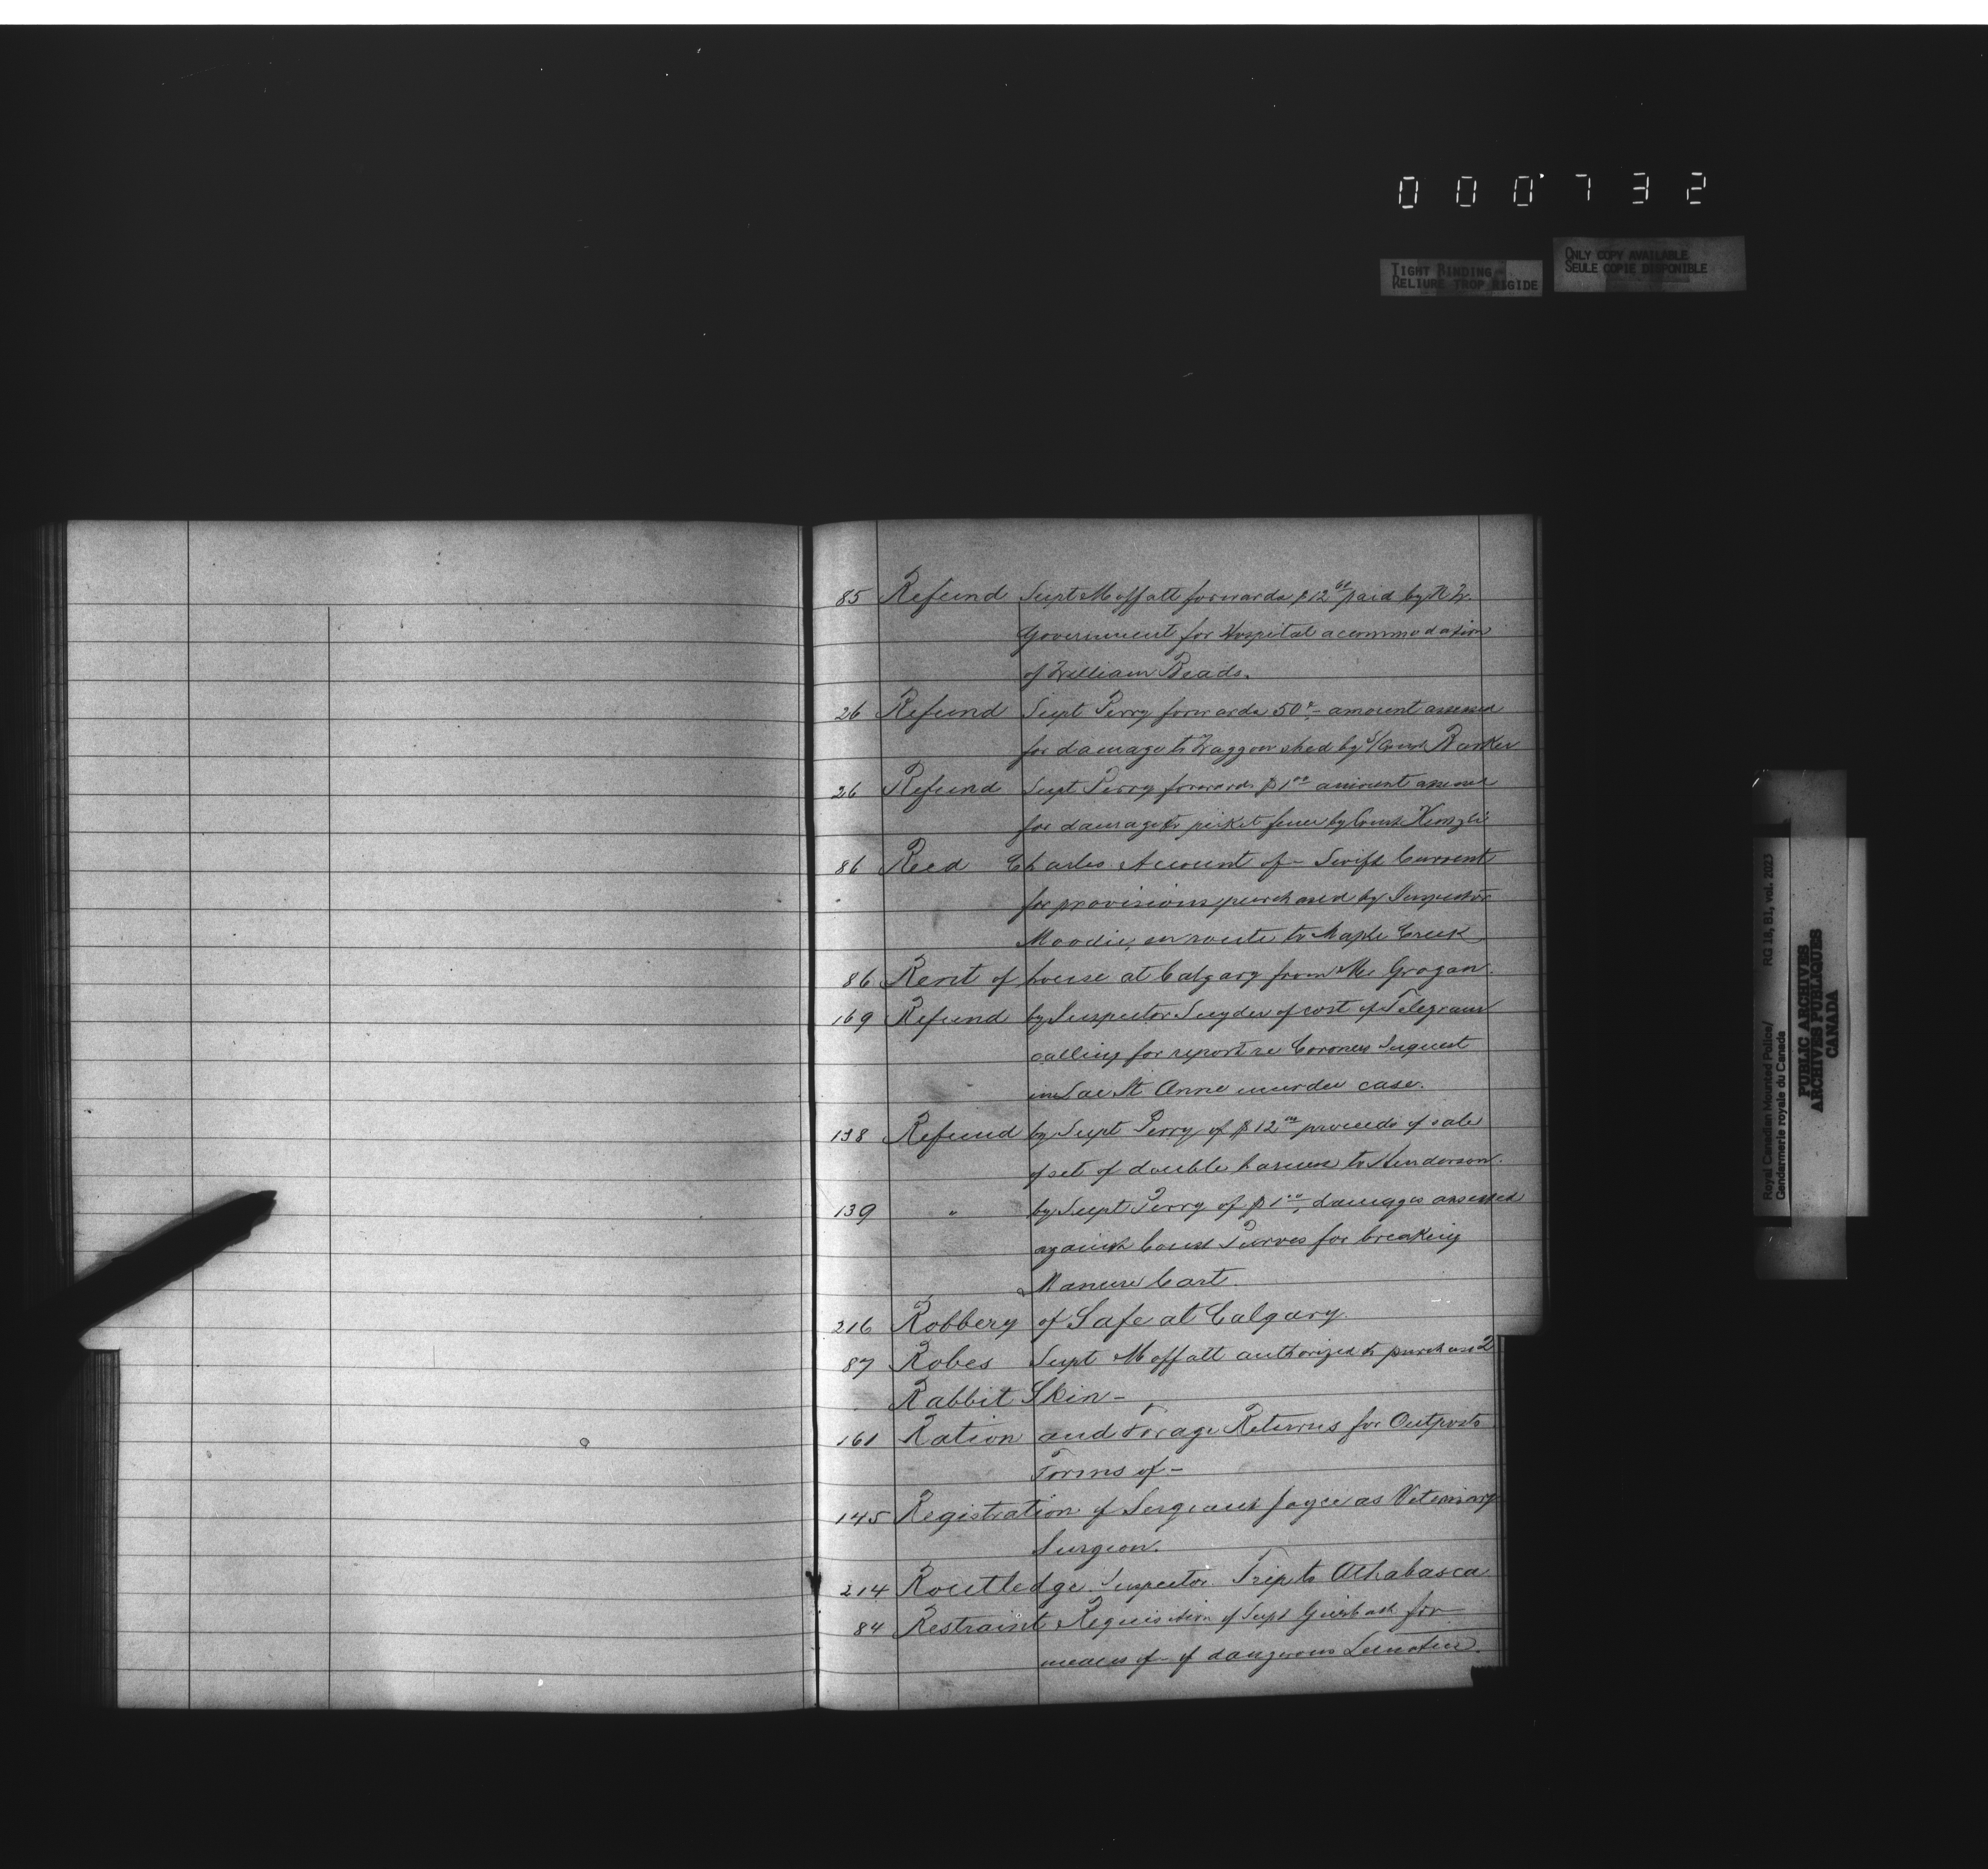 000732
TIGHT BINDING
RELIURE TROP RIGIDE
ONLY COPY AVAILABLE
SEULE COPIE DISPONIBLE
85 Refund Supt Moffatt forwards $12 00 paid by N.W.
Government for Hospital accommodation
of William Beads.
26 Refund Supt Perry forwards 50c amount assessed
for damage to Waggon shed by S/Const Barker
26 Refund Supt Perry forwards $1 00 amount assessed
for damage to picket fence by Const
86 Reed Charles Account of - Swift Current
for provisions purchased by Inspector
Moodie, en route to Maple Creek
86 Rent of house at Calgary from Mr Grogan.
169 Refund by Inspector Snyder of cost of Telegram
calling for report re Coroners Inquest
in Lac St Anne murder case.
138 Refund by Supt Perry of $12 00 proceeds of sale
of set of double harness to Henderson.
139 " by Supt Perry of $1 00, damages assessed
against Const Purves for breaking
Manure Cart.
216 Robbery of Safe at Calgary.
87 Robes Supt Moffatt authorized to purchase 2
Rabbit Skin -
161 Ration and Forage Returns for Outposts
Forms of -
145 Registration of Sergeant Joyce as Veterinary
Surgeon.
214 Routledge Inspector Trip to Athabasca
84 Restraint Requisition of Supt Griesbach for
means of - of dangerous Lunatics.
Royal Canadian Mounted Police/ RG 18, B1, vol. 2023
Gendarmerie royale du Canada
PUBLIC ARCHIVES
ARCHIVES PUBLIQUES
CANADA